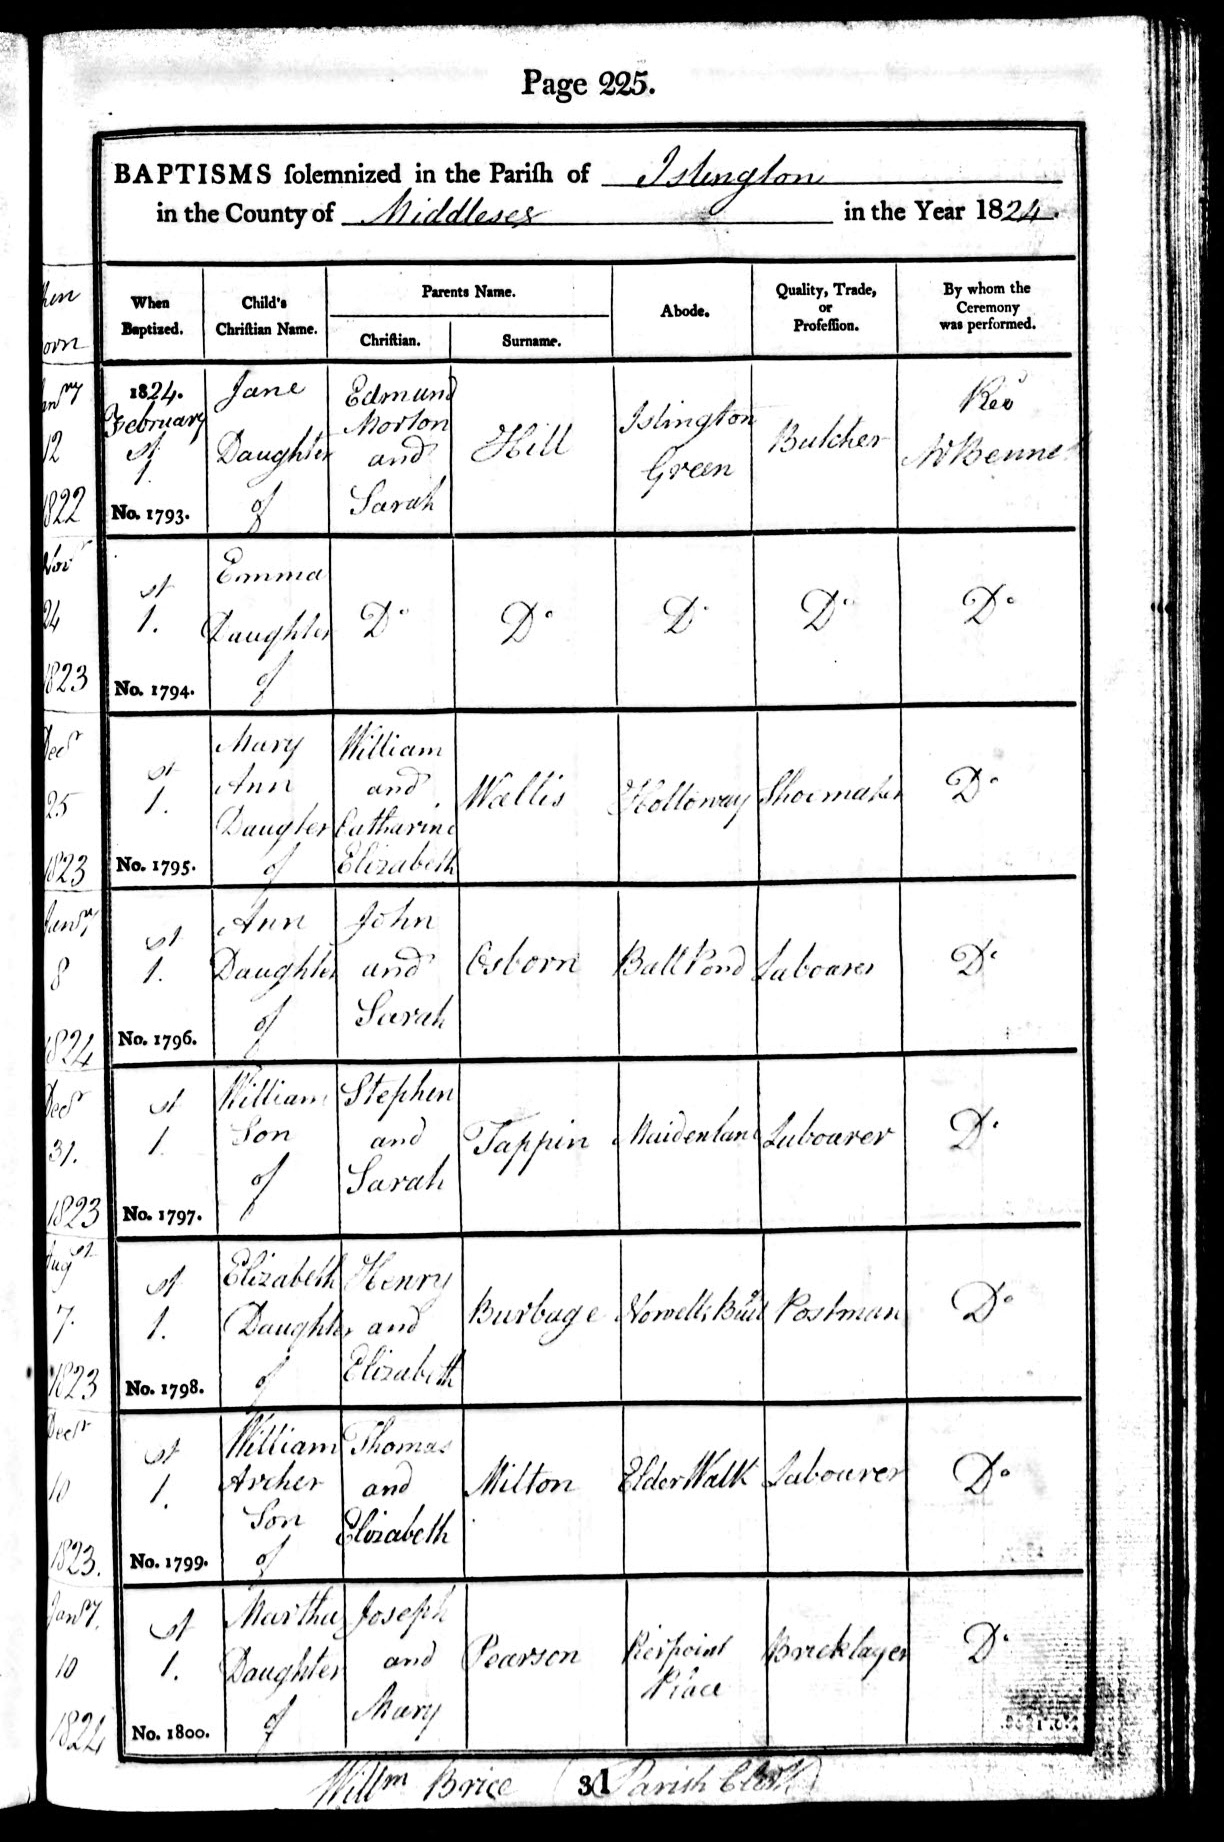 Page 225.
BAPTISMS ſolemnized in the Pariſh of Islington
in the County of Middlesex in the Year 1824.
When
Born
When
Baptized.
Child's
Chriſtian Name.
Parents Name.
Chriſtian.
Surname.
Abode.
Quality, Trade,
or
Profeſſion.
By whom the
Ceremony
was performed.
Jan ry
12
1822
1824.
February
st
1.
No. 1793.
Jane
Daughter
of
Edmund
Morton
and
Sarah
Hill
Islington
Green
Butcher
Rev d
Bennett
Nov r
24
1823
st
1.
No. 1794.
Emma
Daughter
of
Do
Do
Do
Do
Do
Dec r
25
1823
st
1.
No. 1795.
Mary
Ann
Daugter
of
William
and
Catharine
Elizabeth
Wallis
Holloway
Shoemaker
Do
Jan ry
8
1824
st
1.
No. 1796.
Ann
Daughter
of
John
and
Sarah
Osborn
Ball Pond
Labourer
Do
Dec r
31.
1823
st
1.
No. 1797.
William
Son
of
Stephen
and
Sarah
Tappin
Maidenlane
Labourer
Do
Aug st
7.
1823
st
1.
No. 1798.
Elizabeth
Daughter
of
Henry
and
Elizabeth
Burbage
Nowells Buil
Postman
Do
Dec r
10
1823.
st
1.
No. 1799.
William
Archer
Son
of
Thomas
and
Elizabeth
Milton
Elder Walk
Labourer
Do
Jan ry.
10
1824
st
1.
No. 1800.
Martha
Daughter
of
Joseph
and
Mary
Pearson
Pierpoint
Place
Bricklayer
Do
Will m Brice (Parish Clerk)
3 I